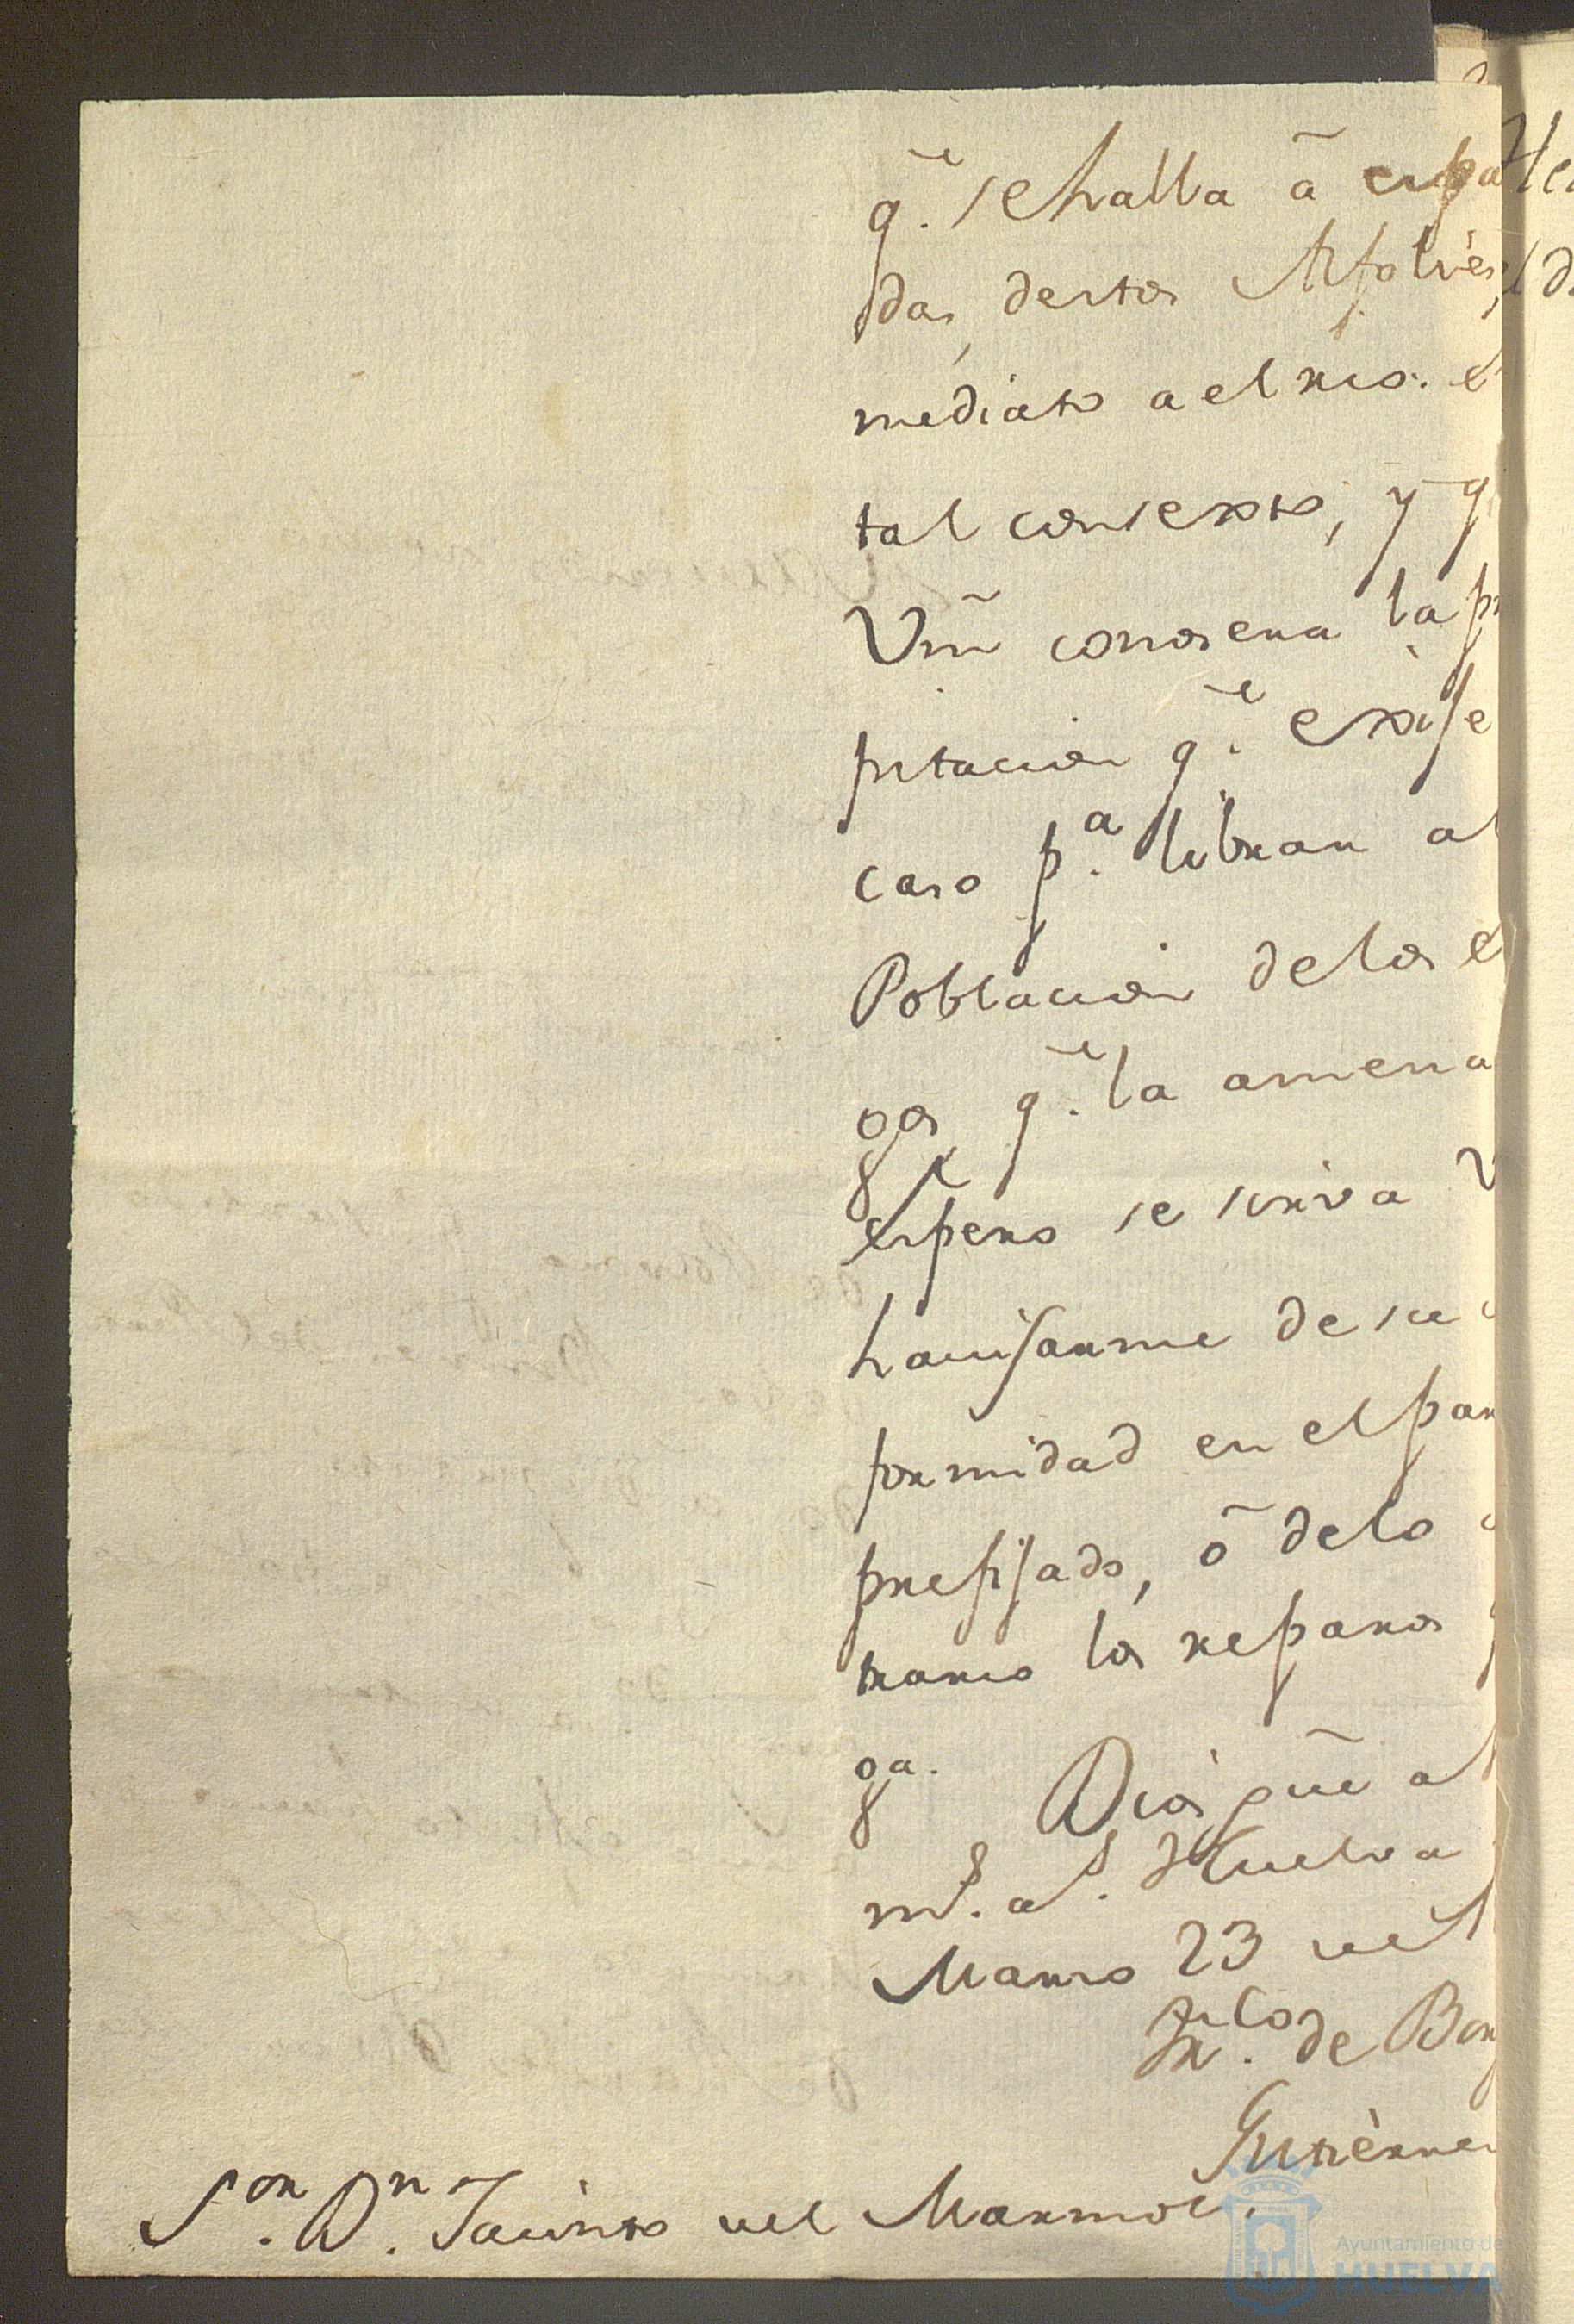 q.e se halla â espa
das destos Alfolies,
mediato a el rio: e
tal contexto, y q
Vm̃ conosera la pr
pitacion q.e exije
caso p.a librar a
Poblacion de los e
gos q.e la amena
espero se sirva V
havisarme de su
formidad en el par
prefijado, ô de lo
trario los reparos
ga. Dios gũe a
m.s a.s Huelva
Marzo 23 de
de Bor
Gutièrrez
S.or D.n Jacinto del Marmol.
Ayuntamiento de
HUELVA